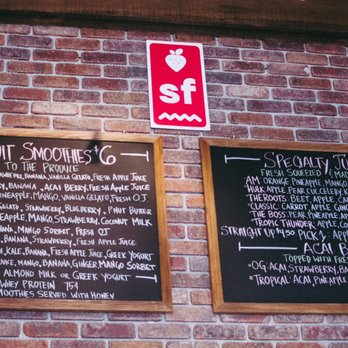 sf
UIT SMOOTHIES $6
TO THE PRODUCE
BANANA, VANILLA GELATO, FRESH APPLE JUICE
BANANA, ACAI BERRY, FRESH APPLE JUICE
MANGO, VANILLA GELATO, FRESH OJ
GELATO, STRAWBERRY, BLUEBERRY, PNUT BUTTER
PINEAPPLE, MANGO, STRAWBERRY, COCONUT MILK
BANANA, MANGO SORBET, FRESH OJ
BANANA, STRAWBERRY, FRESH APPLE JUICE
BANANA, FRESH APPLE JUICE, GREEK YOGURT
KALE, MANGO, BANANA GINGER MANGO SORBET
ALMOND MILK OR GREEK YOGURT
WHEY PROTEIN 75¢
SMOOTHIES SERVED WITH HONEY
SPECIALTY JU
FRESH SQUEEZED & MA
AM ORANGE PINEAPPLE, MANGO
HULK APPLE, PEAR, CUKE, CELERY, K
THE ROOTS BEET, APPLE, CA
CLASSIC CARROT, APPLE, GING
THE BOSS PEAR, PINEAPPLE, APP
TROPIC THUNDER, APPLE, CA
STRAIGHT UP $4.50 PICK 2 APP
ACAI B
TOPPED WITH FRES
•OG. ACAI, STRAWBERRY, BA
•TROPICAL ACAI, PINEAPPLE